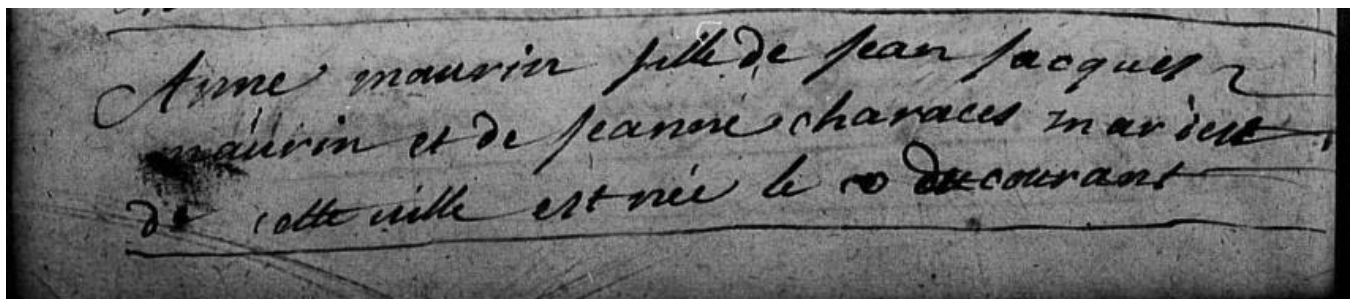 Anne maurin fille de jean jacques
maurin et de jeanne characes mariest
de cette ville est née le du courant